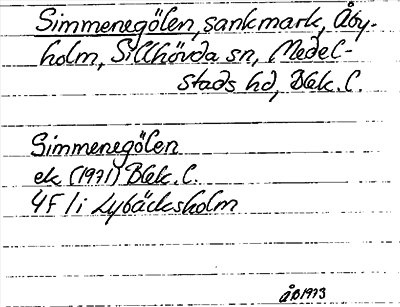 Simmenegölen, sankmark, Åby-
holm, Sillhövda sn, Medel-
stads hd, Blek. L.
Simmenegölen
ek (1971) Blek. L.
4F 1i Lybäcksholm
ÅB 1973